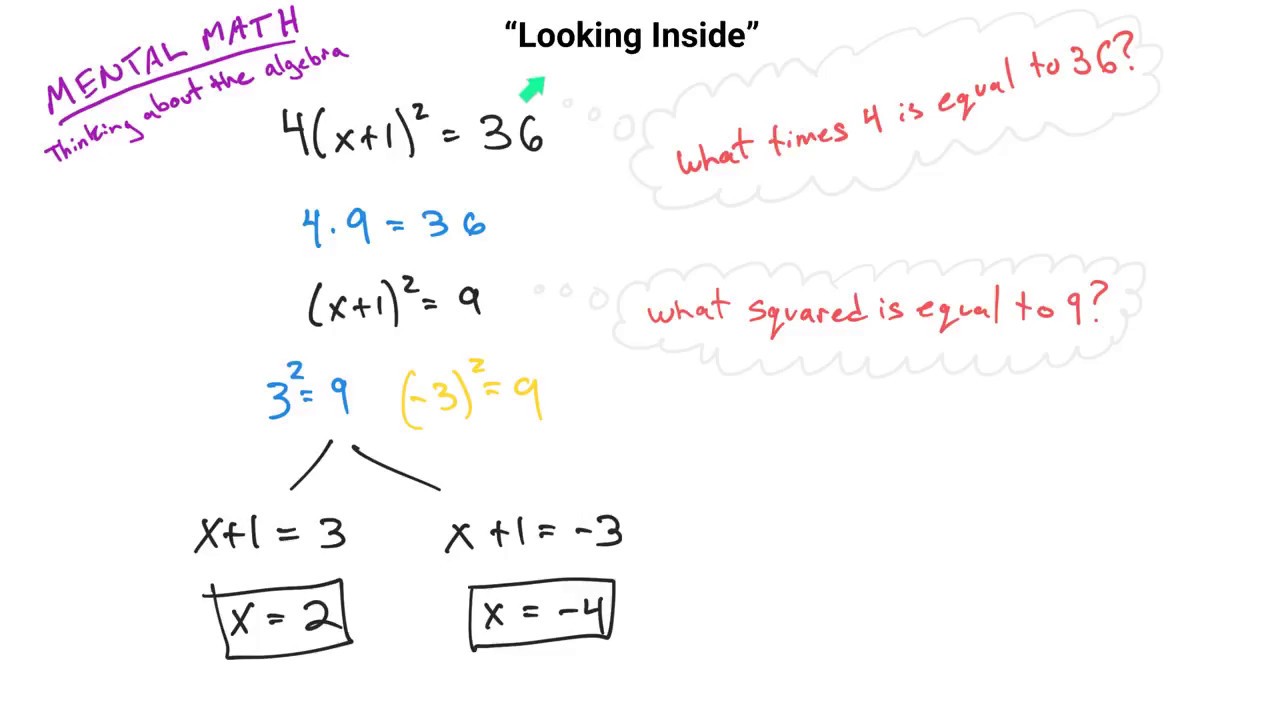 “Looking Inside”
MENTAL MATH
Thinking about the algebra
4(x+1)² = 36
what times 4 is equal to 36?
4·9 = 36
(x+1)² = 9
what squared is equal to 9?
3² = 9 (-3)² = 9
x+1 = 3 x+1 = -3
x = 2 x = -4